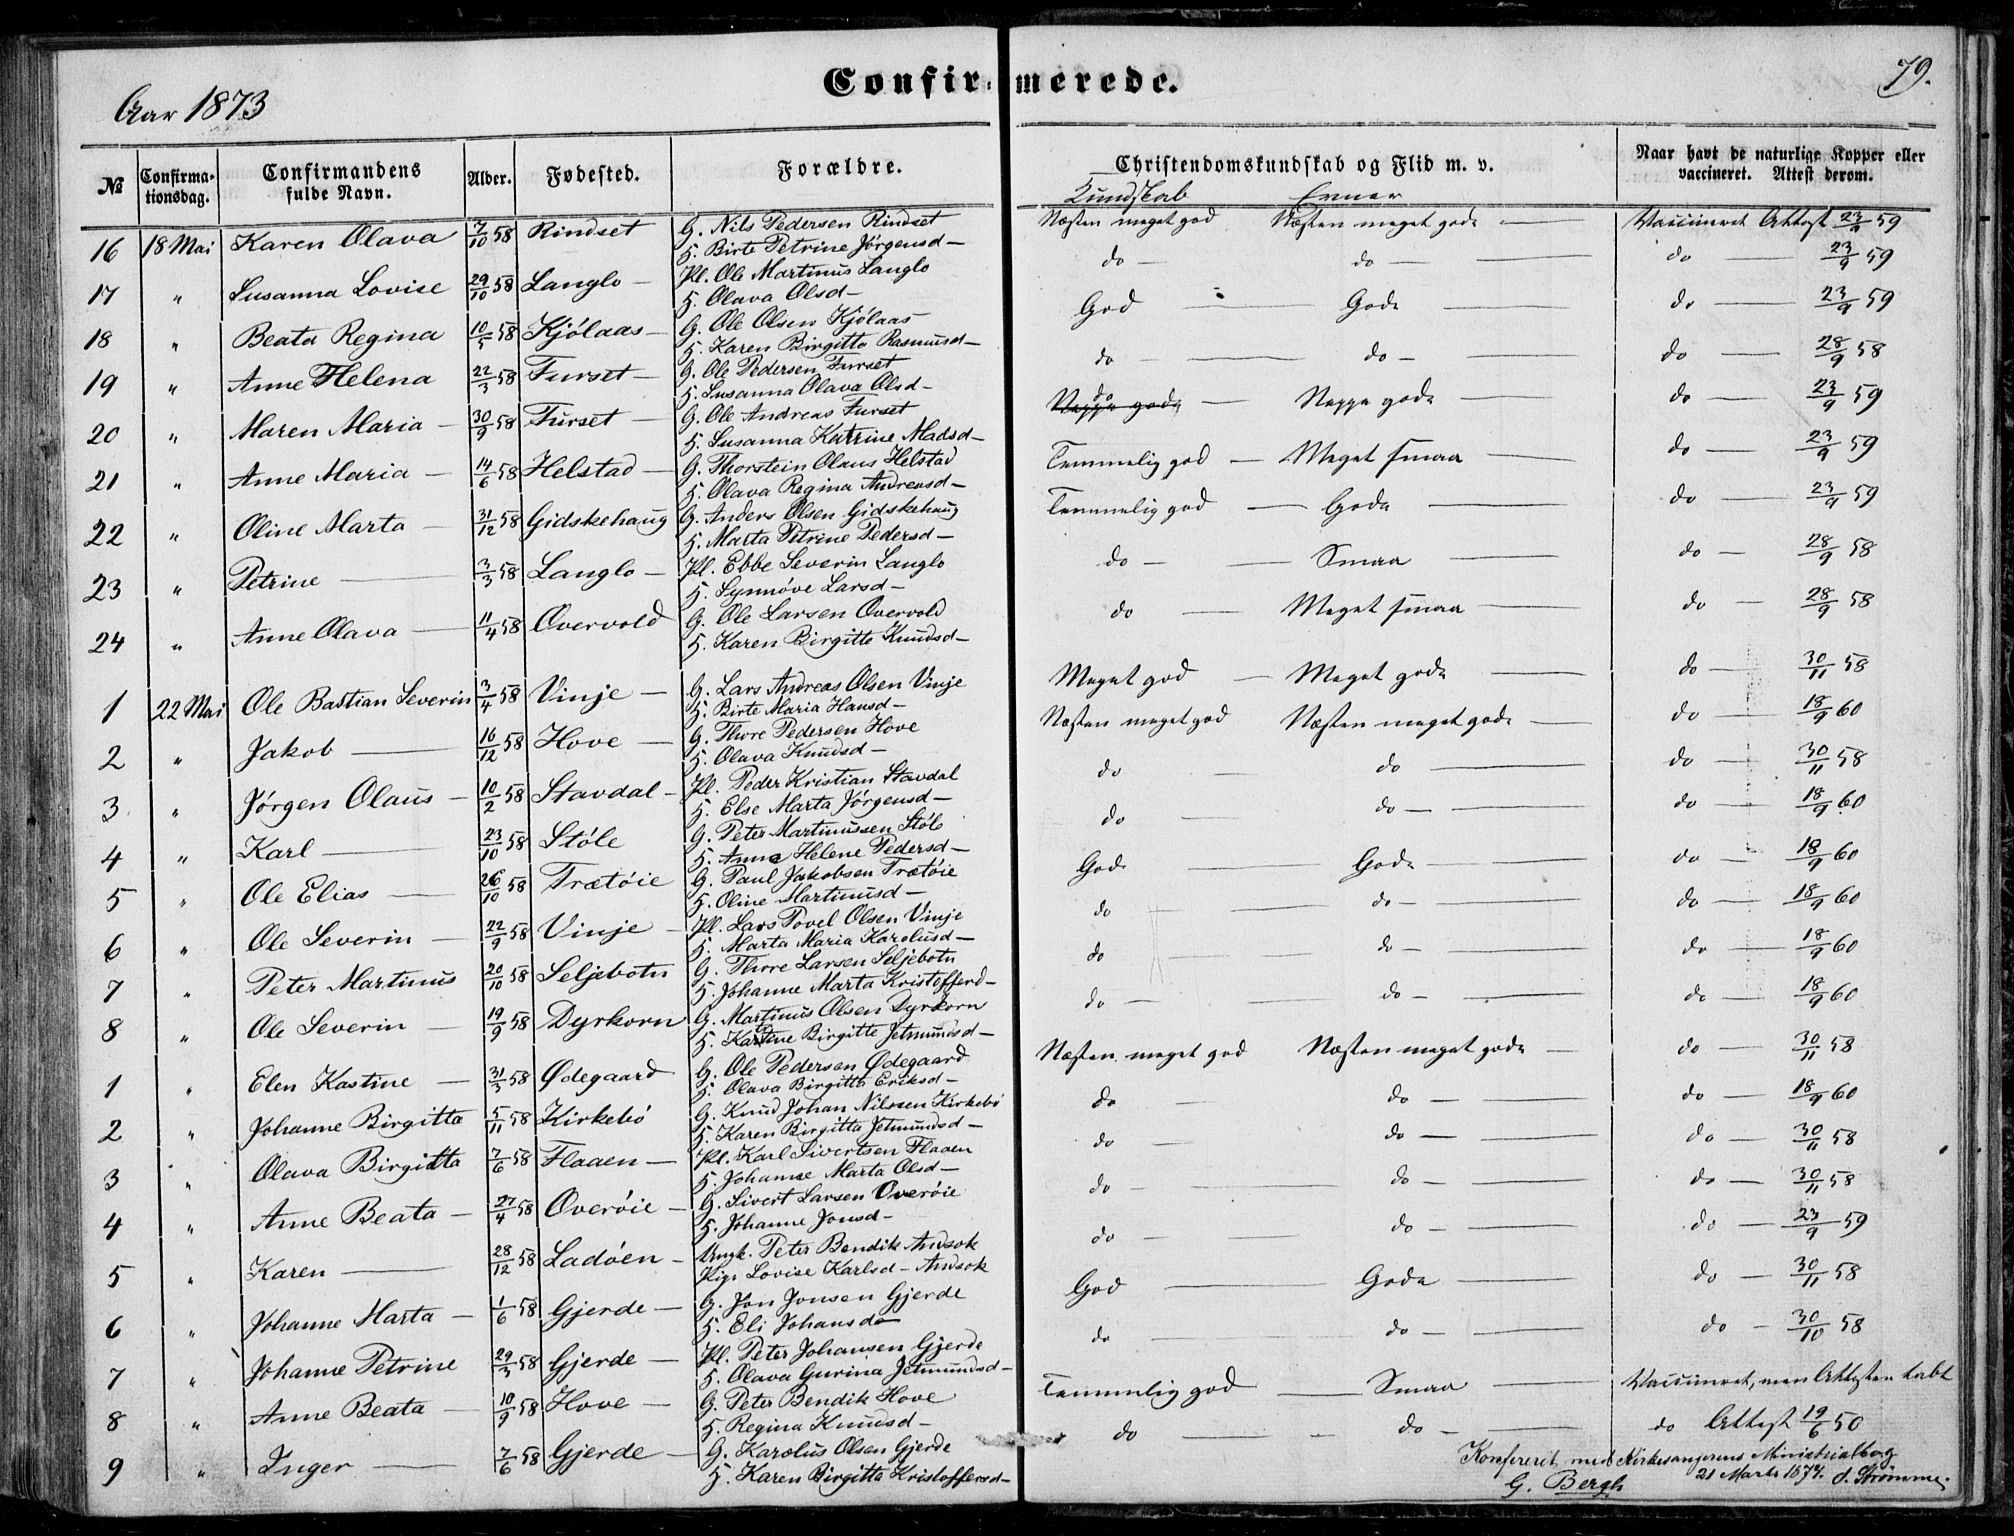 Aar 1873
Confirmerede.
79.
No Confirmationsdag. Confirmandens fulde Navn. Alder. Fødested. Forældre. Christendomskundskab og Flid m. v. Naar havt de naturlige Kopper eller vaccineret. Attest derom.
Kundskab Evner
16 18 Mai Karen Olava 7/10 58 Rindset G. Nils Pedersen Rindset Næsten meget god Næsten meget gode — Vaccineret Attest 23/9 59
H. Birte Petrine Jørgensd—
17 " Susanna Lovise 29/10 58 Langlo — Pl. Ole Martinus Langlo do — do — do — 23/9 59
H. Olava Olsd—
18 " Beata Regina 10/5 58 Kjólaas — G. Ole Olsen Kjólaas God — Gode — do — 23/9 59
H. Karen Birgitta Rasmusd—
19 " Anne Helena 22/3 58 Furset — G. Ole Pedersen Furset do — do — do — 28/9 58
H. Susanna Olava Olsd—
20 " Maren Maria — 30/9 58 Furset — G. Ole Andreas Furset do — Neppe gode — do — 23/9 59
H. Susanna Katrine Madsd—
21 " Anne Maria — 14/6 58 Helstad — G. Thorstein Olaus Helstad Temmelig god — Meget smaa — do — 23/9 59
H. Olava Regina Andreasd—
22 " Oline Marta — 31/12 58 Gidskehaug G. Anders Olsen Gidskehaug Temmelig god — Gode — do — 23/9 59
H. Marta Petrine Pedersd—
23 " Petrine — 3/3 58 Langlo — Pl. Ebbe Severin Langlo do — Smaa — do — 28/9 58
H. Synnóve Larsd—
24 " Anne Olava — 11/4 58 Overvold G. Ole Larsen Overvold do — Meget smaa — do — 28/9 58
H. Karen Birgitte Knudsd—
1 22 Mai Ole Bastian Severin 3/4 58 Vinje — G. Lars Andreas Olsen Vinje Meget god — Meget gode — do — 30/11 58
H. Birte Maria Hansd—
2 " Jakob — 16/12 58 Hove — G. Thore Pedersen Hove Næsten meget god Næsten meget gode — do — 18/9 60
H. Olava Knudsd—
3 " Jórgen Olaus — 10/2 58 Stavdal — Pl. Peder Kristian Stavdal do — do — do — 30/11 58
H. Else Marta Jórgensd—
4 " Karl — 23/10 58 Stóle G. Peter Martinussen Stóle do — do — do — 18/9 60
H. Anne Helene Pedersd—
5 " Ole Elias — 26/10 58 Trætóie G. Paul Jakobsen Trætóie God — Gode — do — 18/9 60
H. Oline Martinusd—
6 " Ole Severin — 22/9 58 Vinje — Pl. Lars Povel Olsen Vinje do — do — do — 18/9 60
H. Marta Maria Karolusd—
7 " Peter Martinus 20/10 58 Seljebotn G. Thore Larsen Seljebotn do — do — do — 18/9 60
H. Johanne Marta Kristofferd—
8 " Ole Severin — 19/9 58 Dyrkorn G. Martinus Olsen Dyrkorn do — do — do — 18/9 60
H. Birgitte Jetmundsd—
1 " Elen Kastine — 31/3 58 Ødegaard G. Ole Pedersen Ødegaard Næsten meget god Næsten meget gode — do — 30/11 58
H. Olava Birgitta Eriksd—
2 " Johanne Birgitta 5/11 58 Kirkebó G. Knud Johan Nilssen Kirkebó do — do — do — 18/9 60
H. Karen Birgitta Jetmundsd—
3 " Olava Birgitta 7/6 58 Flaaen — Pl. Karl Sivertsen Flaaen do — do — do — 30/11 58
H. Johanne Marta Olsd—
4 " Anne Beata — 27/4 58 Overóie — G. Sivert Larsen Overóie do — do — do — 30/11 58
H. Johanne Jonsd—
5 " Karen — 28/12 58 Ladóen — Ungk. Peter Bendik Andsok do — do — do — 23/9 59
Pige Lovise Karlsd— Andsok
6 " Johanne Marta — 1/6 58 Gjerde — G. Jon Jonsen Gjerde God — Gode — do — 30/11 58
H. Eli Johansd—
7 " Johanne Petrine 29/3 58 Gjerde — Pl. Peter Johansen Gjerde do — do — do — 30/10 58
H. Olava Gurina Jetmundsd—
8 " Anne Beata — 10/9 58 Hove — G. Peter Bendik Hove Temmelig god — Smaa — Vaccineret, men Attesten tabt
H. Regina Knudsd—
9 " Inger — 7/6 58 Gjerde — G. Karolus Olsen Gjerde do — do — do Attest 19/6 50
H. Karen Birgitta Kristoffersd—
Konfereret med Kirkesangerens Ministerialbog
21 Marts 1874. S. Strømme.
G. Bergh